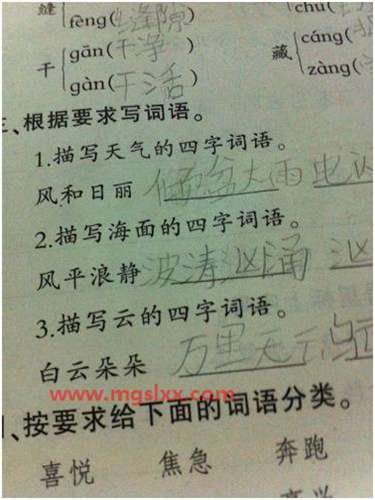 缝 fèng(缝隙) chu(
干 gān(干净) 藏 cáng(
gàn(干活) zàng(
三、根据要求写词语。
1.描写天气的四字词语。
风和日丽 倾盆大雨 电闪
2.描写海面的四字词语。
风平浪静 波涛汹涌 汹
3.描写云的四字词语。
白云朵朵 万里无云 乌云
www.mgslxx.com
、按要求给下面的词语分类。
喜悦 焦急 奔跑
高兴